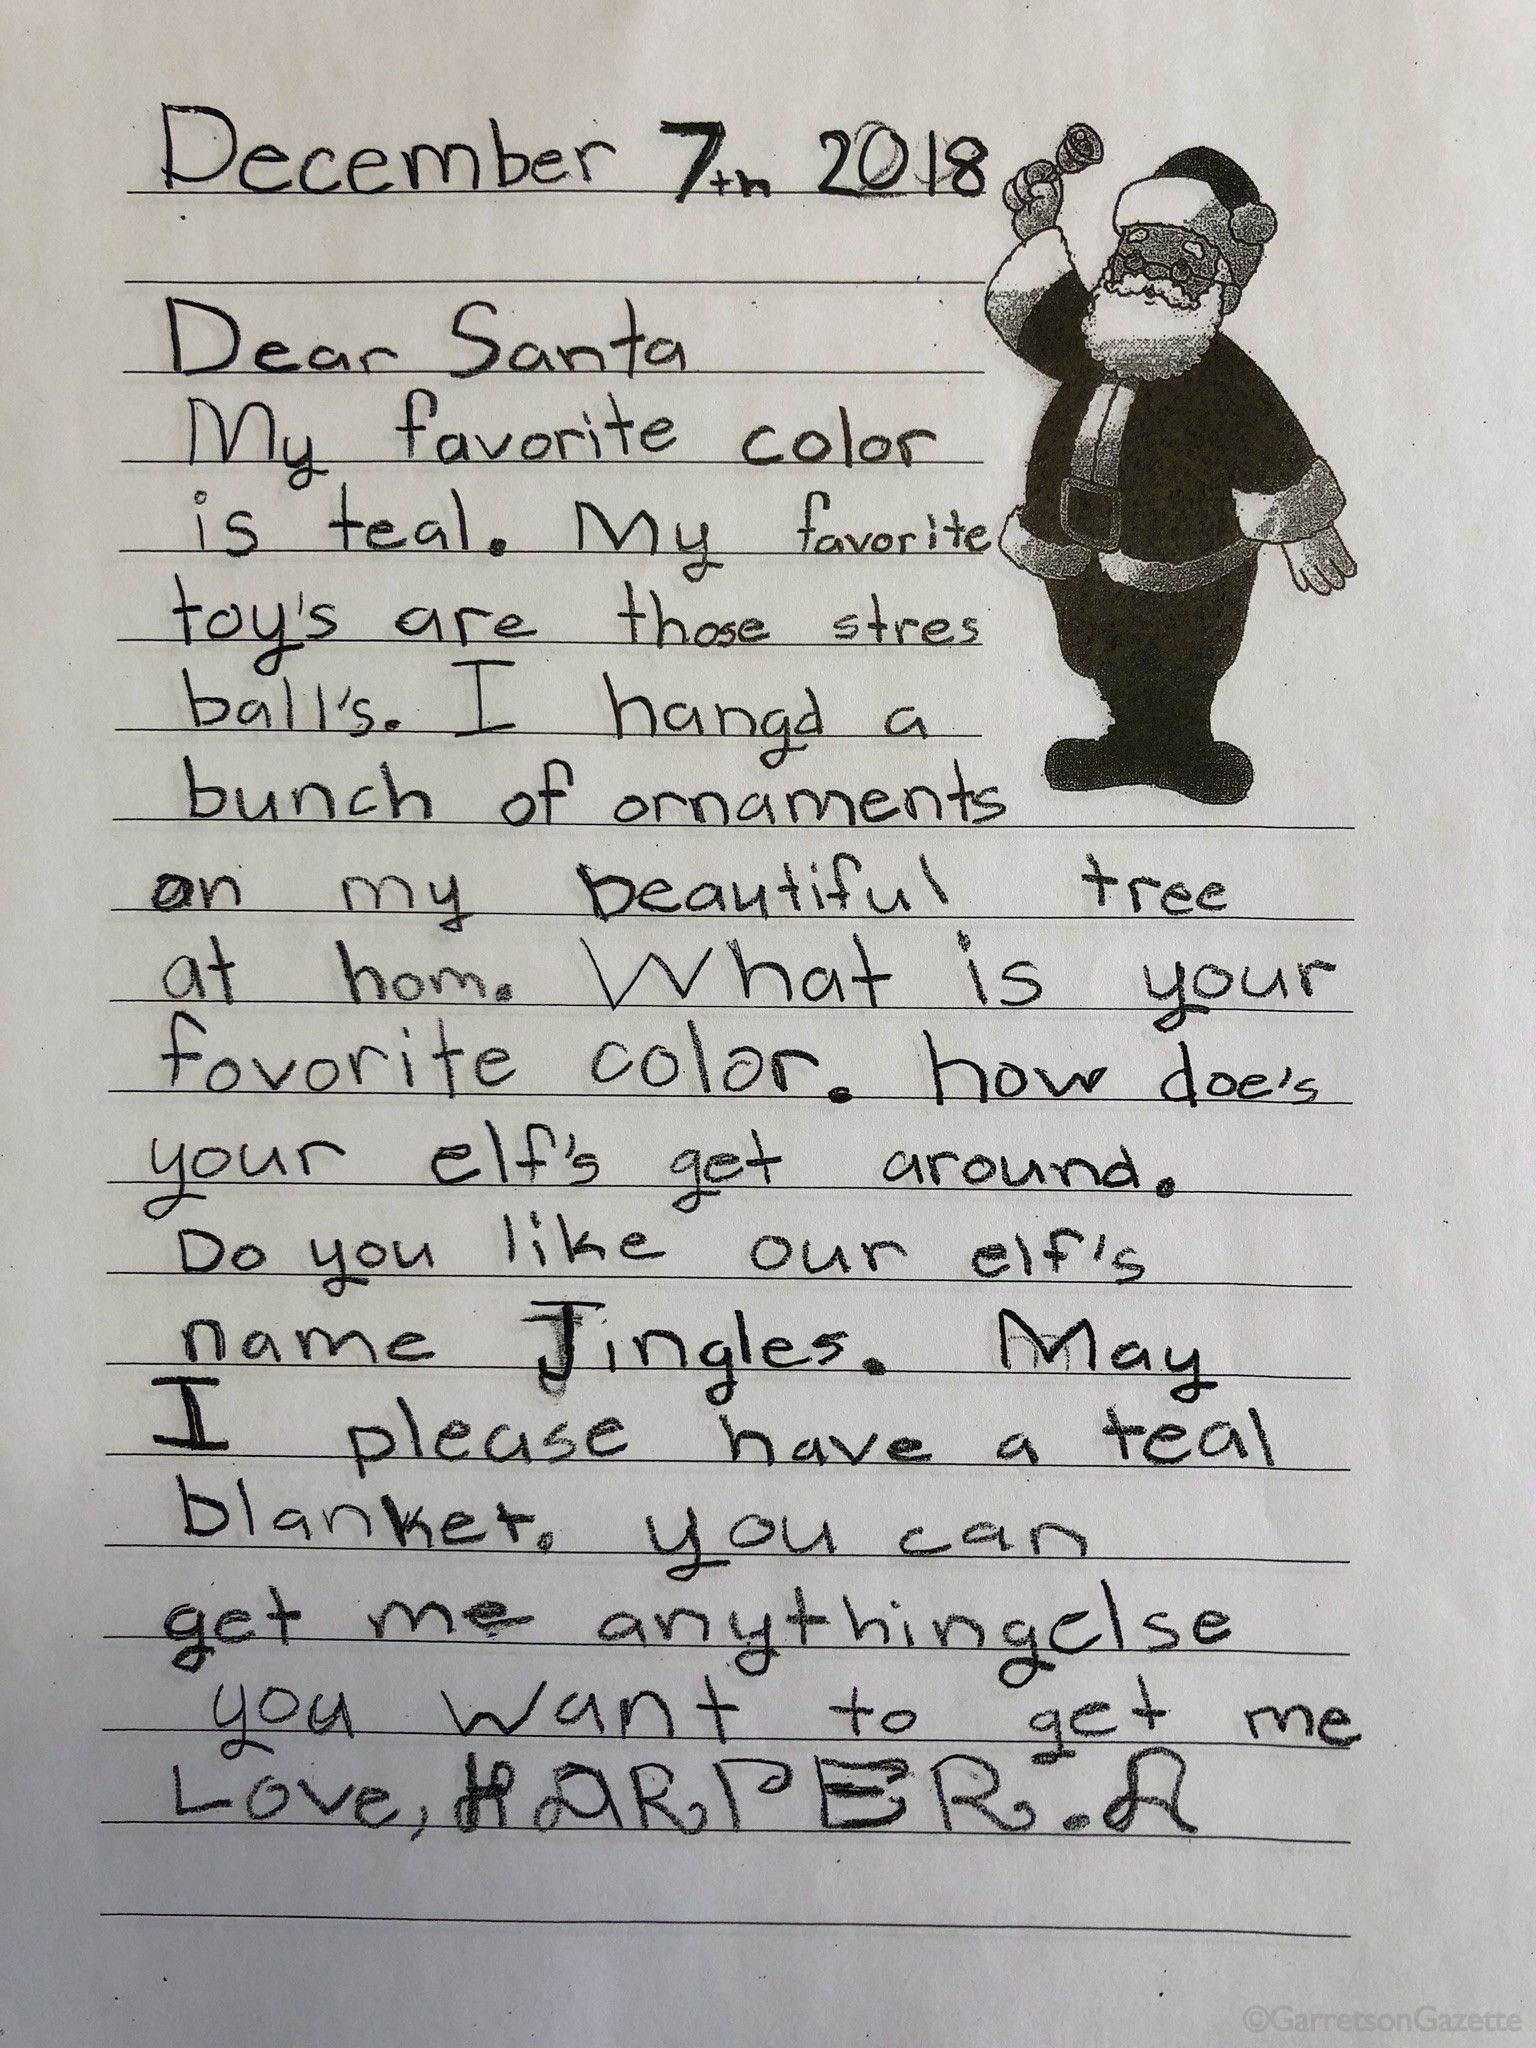 December 7th 2018
Dear Santa
My favorite color
is teal. My favorite
toy's are those stres
ball's. I hangd a
bunch of ornaments
on my beautiful tree
at hom. What is your
fovorite color. how doe's
your elf's get around.
Do you like our elf's
name Jingles. May
I please have a teal
blanket. you can
get me anythingelse
you want to get me
Love, HARPER.A
©GarretsonGazette